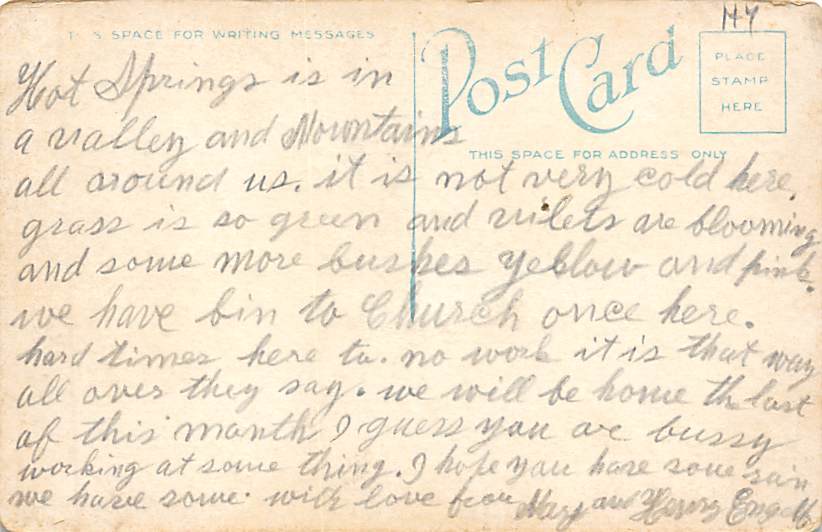 HY
THIS SPACE FOR WRITING MESSAGES
Post Card
PLACE
STAMP
HERE
THIS SPACE FOR ADDRESS ONLY
Hot Springs is in
a valley and Mountains
all around us. it is not very cold here.
grass is so green and vilets are blooming
and some more bushes yellow and pink.
we have bin to Church once here.
hard times here to. no work it is that way
all over they say. we will be home the last
of this month I guess you are bussy
working at some thing. I hope you have some rain
we have some. with love from Mary and Henry